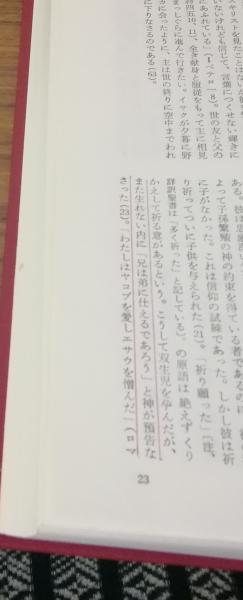 スキリストを見たことはないが
いないけれども信じて、言葉につくせない輝きに
にあふれている」(Ⅰペテロ一8)。世の友と父の
詩四五10、11)、全き献身と服従をもって主に相見
まっしぐらに進んで行きたい。イサクが夕暮に野
カに会ったように、主は世の終りに空中までわれ
に下りなさるのである(63)。
よって子孫繁殖の神の約束を得ている者であ
に子がなかった。これは信仰の試練であった。しかし彼は祈
り祈ってついに子供を与えられた(21)。「祈り願った」〔註、
詳訳聖書は「多く祈った」と記している〕。の原語は絶えずくり
かえして祈る意があるという。こうして双生児を孕んだが、
また生れない内に「兄は弟に仕えるであろう」と神が預告な
さった(23)。「わたしはヤコブを愛しエサウを憎んだ」(ロマ
23